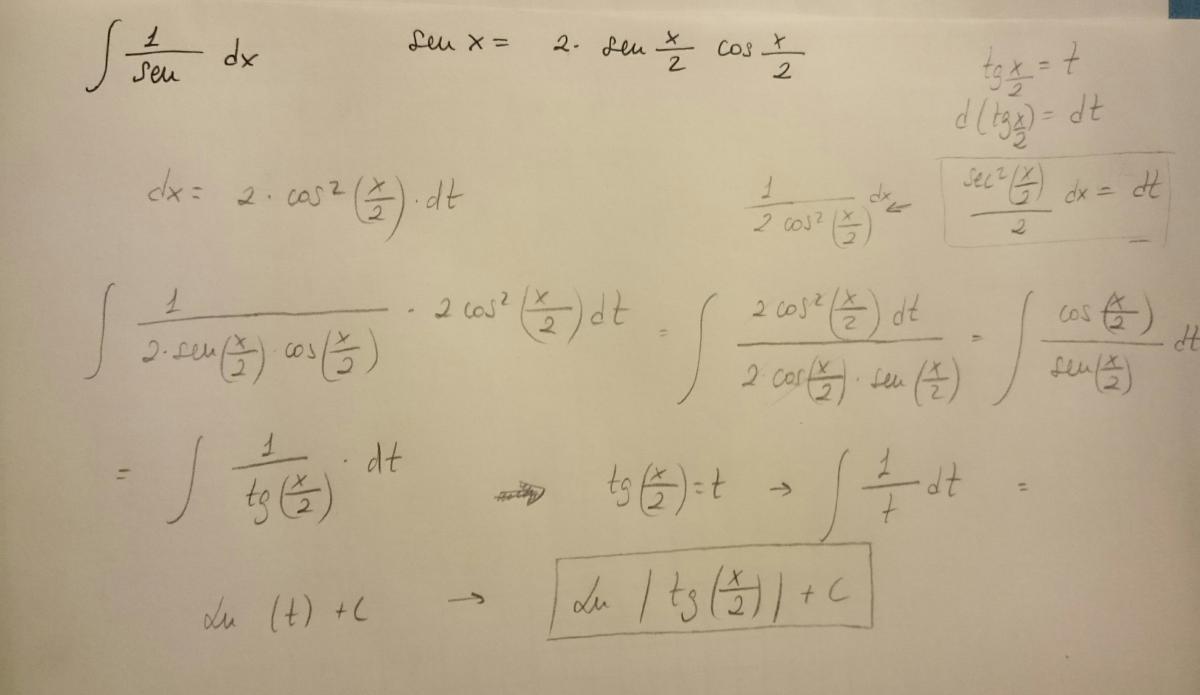 ∫ 1/sen dx    sen x = 2· sen x/2 cos x/2
tg x/2 = t
d(tg x/2) = dt
dx = 2 · cos² (x/2) · dt    1/(2 cos² (x/2)) dx ←    sec² (x/2)/2 dx = dt
∫ 1/(2·sen(x/2)·cos(x/2)) · 2 cos² (x/2) dt = ∫ 2 cos² (x/2) dt/(2·cos(x/2)·sen(x/2)) = ∫ cos(x/2)/sen(x/2) dt
= ∫ 1/tg(x/2) · dt    tg(x/2) = t → ∫ 1/t dt =
Ln (t) + C → Ln |tg(x/2)| + C